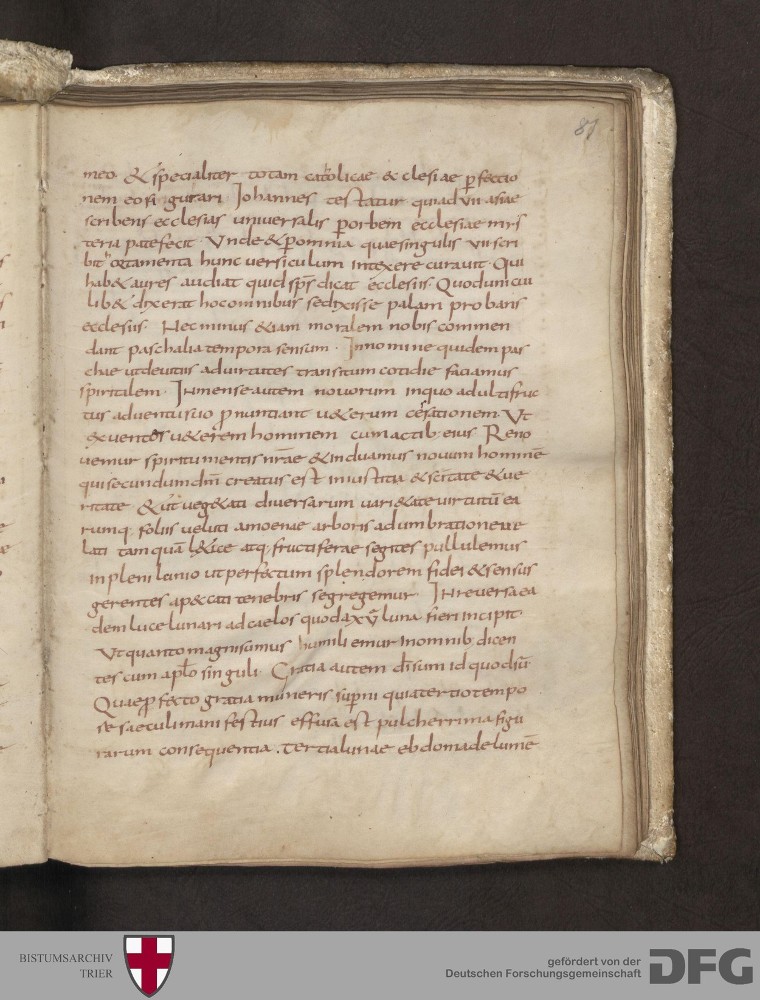 81
meo & specialiter totam catholicae & clesiae pfectio
nem eo figurari Iohannes testatur qui ad vii asiae
scribens ecclesias universalis p orbem ecclesiae mis
teria patefecit. Unde & p omnia quae singulis vii scri
bit hunc versiculum intexere curavit. Qui
hab& aures audiat quid sps dicat ecclesiis. Quod uni cui
lib& dixerat hoc omnibus se dixisse palam probans
ecclesiis. Nec minus &iam moralem nobis commen
dant paschalia tempora sensum. In nomine quidem pas
chae ut de vitiis ad virtutes transitum cotidie faciamus
spiritalem. In mense autem novorum in quo adulti fruc
tus adventu suo pnuntiant u&erum cessationem. Ut
& u&erem hominem cum actib; eius Reno
vemur spiritu mentis nrae & induamus novum hominē
qui secundum dm creatus est in iustitia & scitate & ve
ritate & ut veg&ati diversarum vari&ate virtutū ea
rumq; foliis veluti amoenae arboris adumbratione ve
lati tam quā l&ice atq; fructiferae segites pullulemus
in pleni lunio ut perfectum splendorem fidei & sensus
gerentes a p&cati tenebris segregemur. In reversa ea
dem luce lunari ad caelos quod a xv luna fieri incipit.
Ut quanto magni sumus humiliemur in omnib; dicen
tes cum aplo singuli. Gratia autem di sum id quod sū
Quae pfecto gratia muneris supni quia tertio tempo
re saeculi mani festius effusa est pulcherrima figu
rarum consequentia. tertia lunae ebdomade lumē
BISTUMSARCHIV
TRIER
gefördert von der
Deutschen Forschungsgemeinschaft
DFG